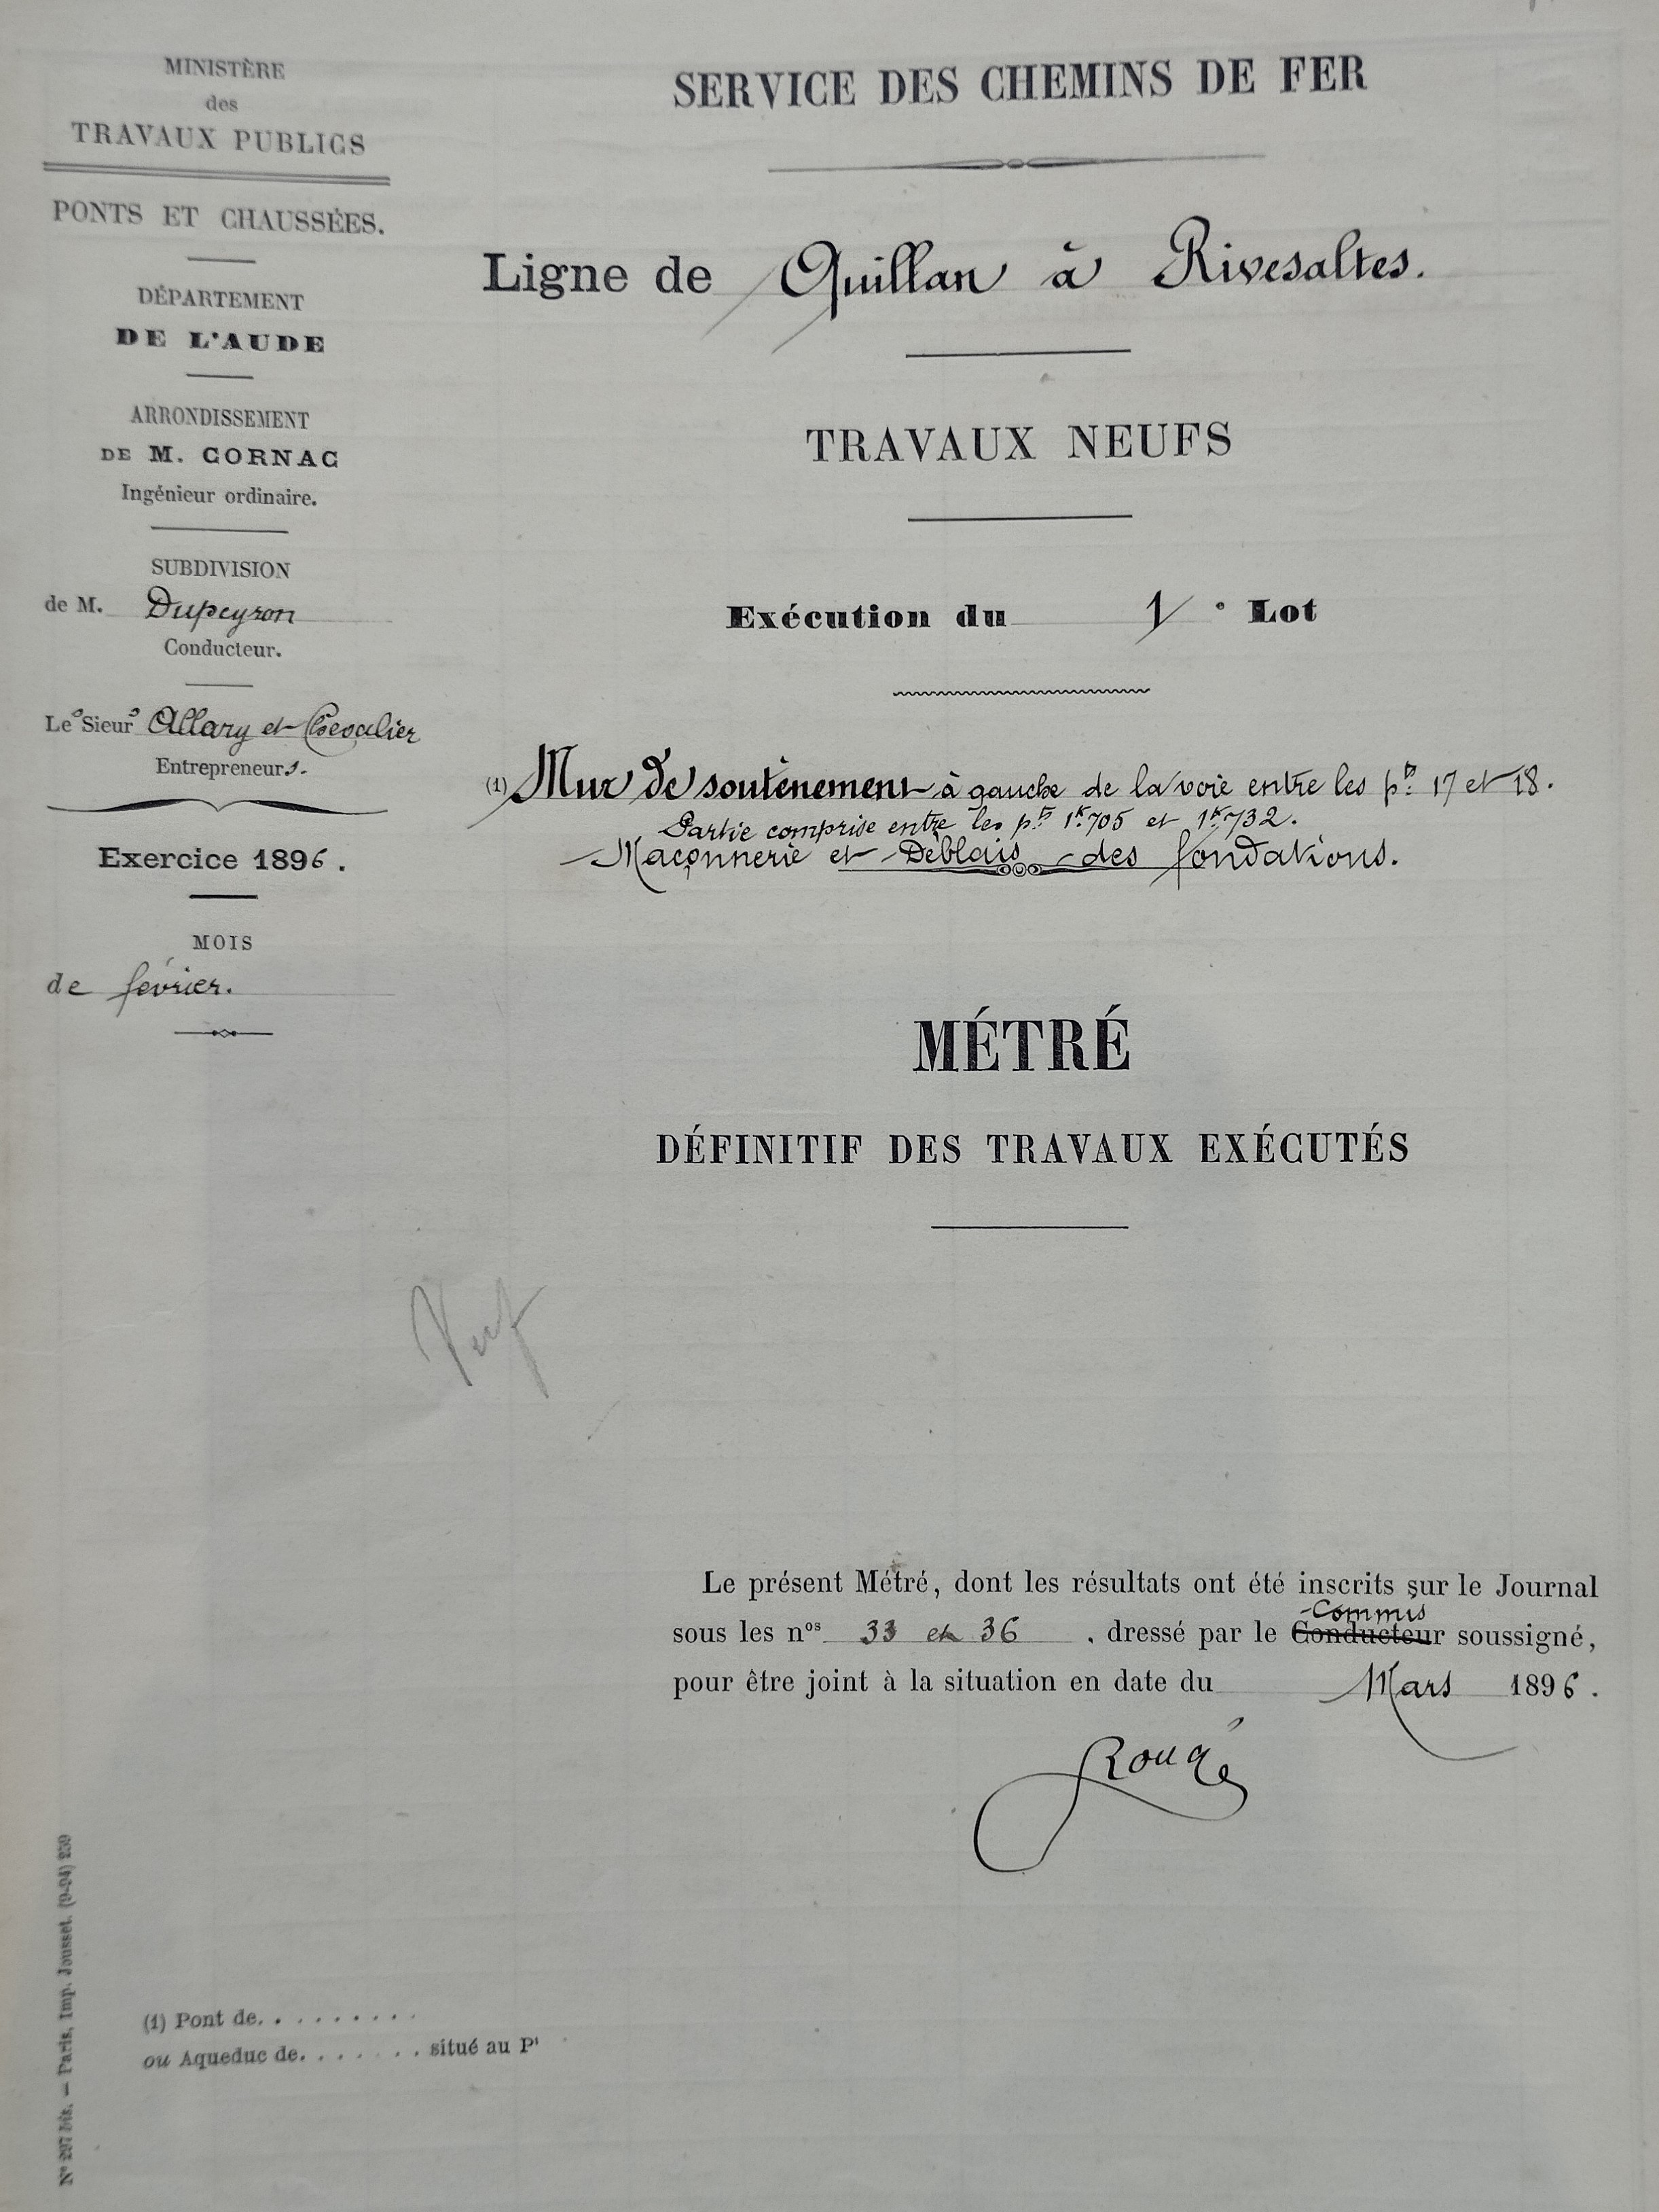 MINISTÈRE
des
TRAVAUX PUBLICS
PONTS ET CHAUSSÉES.
DÉPARTEMENT
DE L'AUDE
ARRONDISSEMENT
DE M. CORNAC
Ingénieur ordinaire.
SUBDIVISION
de M. Dupeyron
Conducteur.
Les Sieurs Allary et Chevalier
Entrepreneurs.
Exercice 1896.
MOIS
de février.
SERVICE DES CHEMINS DE FER
Ligne de Quillan à Rivesaltes.
TRAVAUX NEUFS
Exécution du 1e Lot
(1) Mur de soutènement à gauche de la voie entre les pts 17 et 18.
Partie comprise entre les pts 1k.705 et 1k.732.
Maçonnerie et Déblais des fondations.
MÉTRÉ
DÉFINITIF DES TRAVAUX EXÉCUTÉS
Le présent Métré, dont les résultats ont été inscrits sur le Journal
Commis
sous les nos 33 et 36, dressé par le Conducteur soussigné,
pour être joint à la situation en date du Mars 1896.
Rougé
(1) Pont de. . . . . . . . .
ou Aqueduc de. . . . . . . situé au Pt
N° 297 bis. — Paris, Imp. Jousset. (9-94) 250